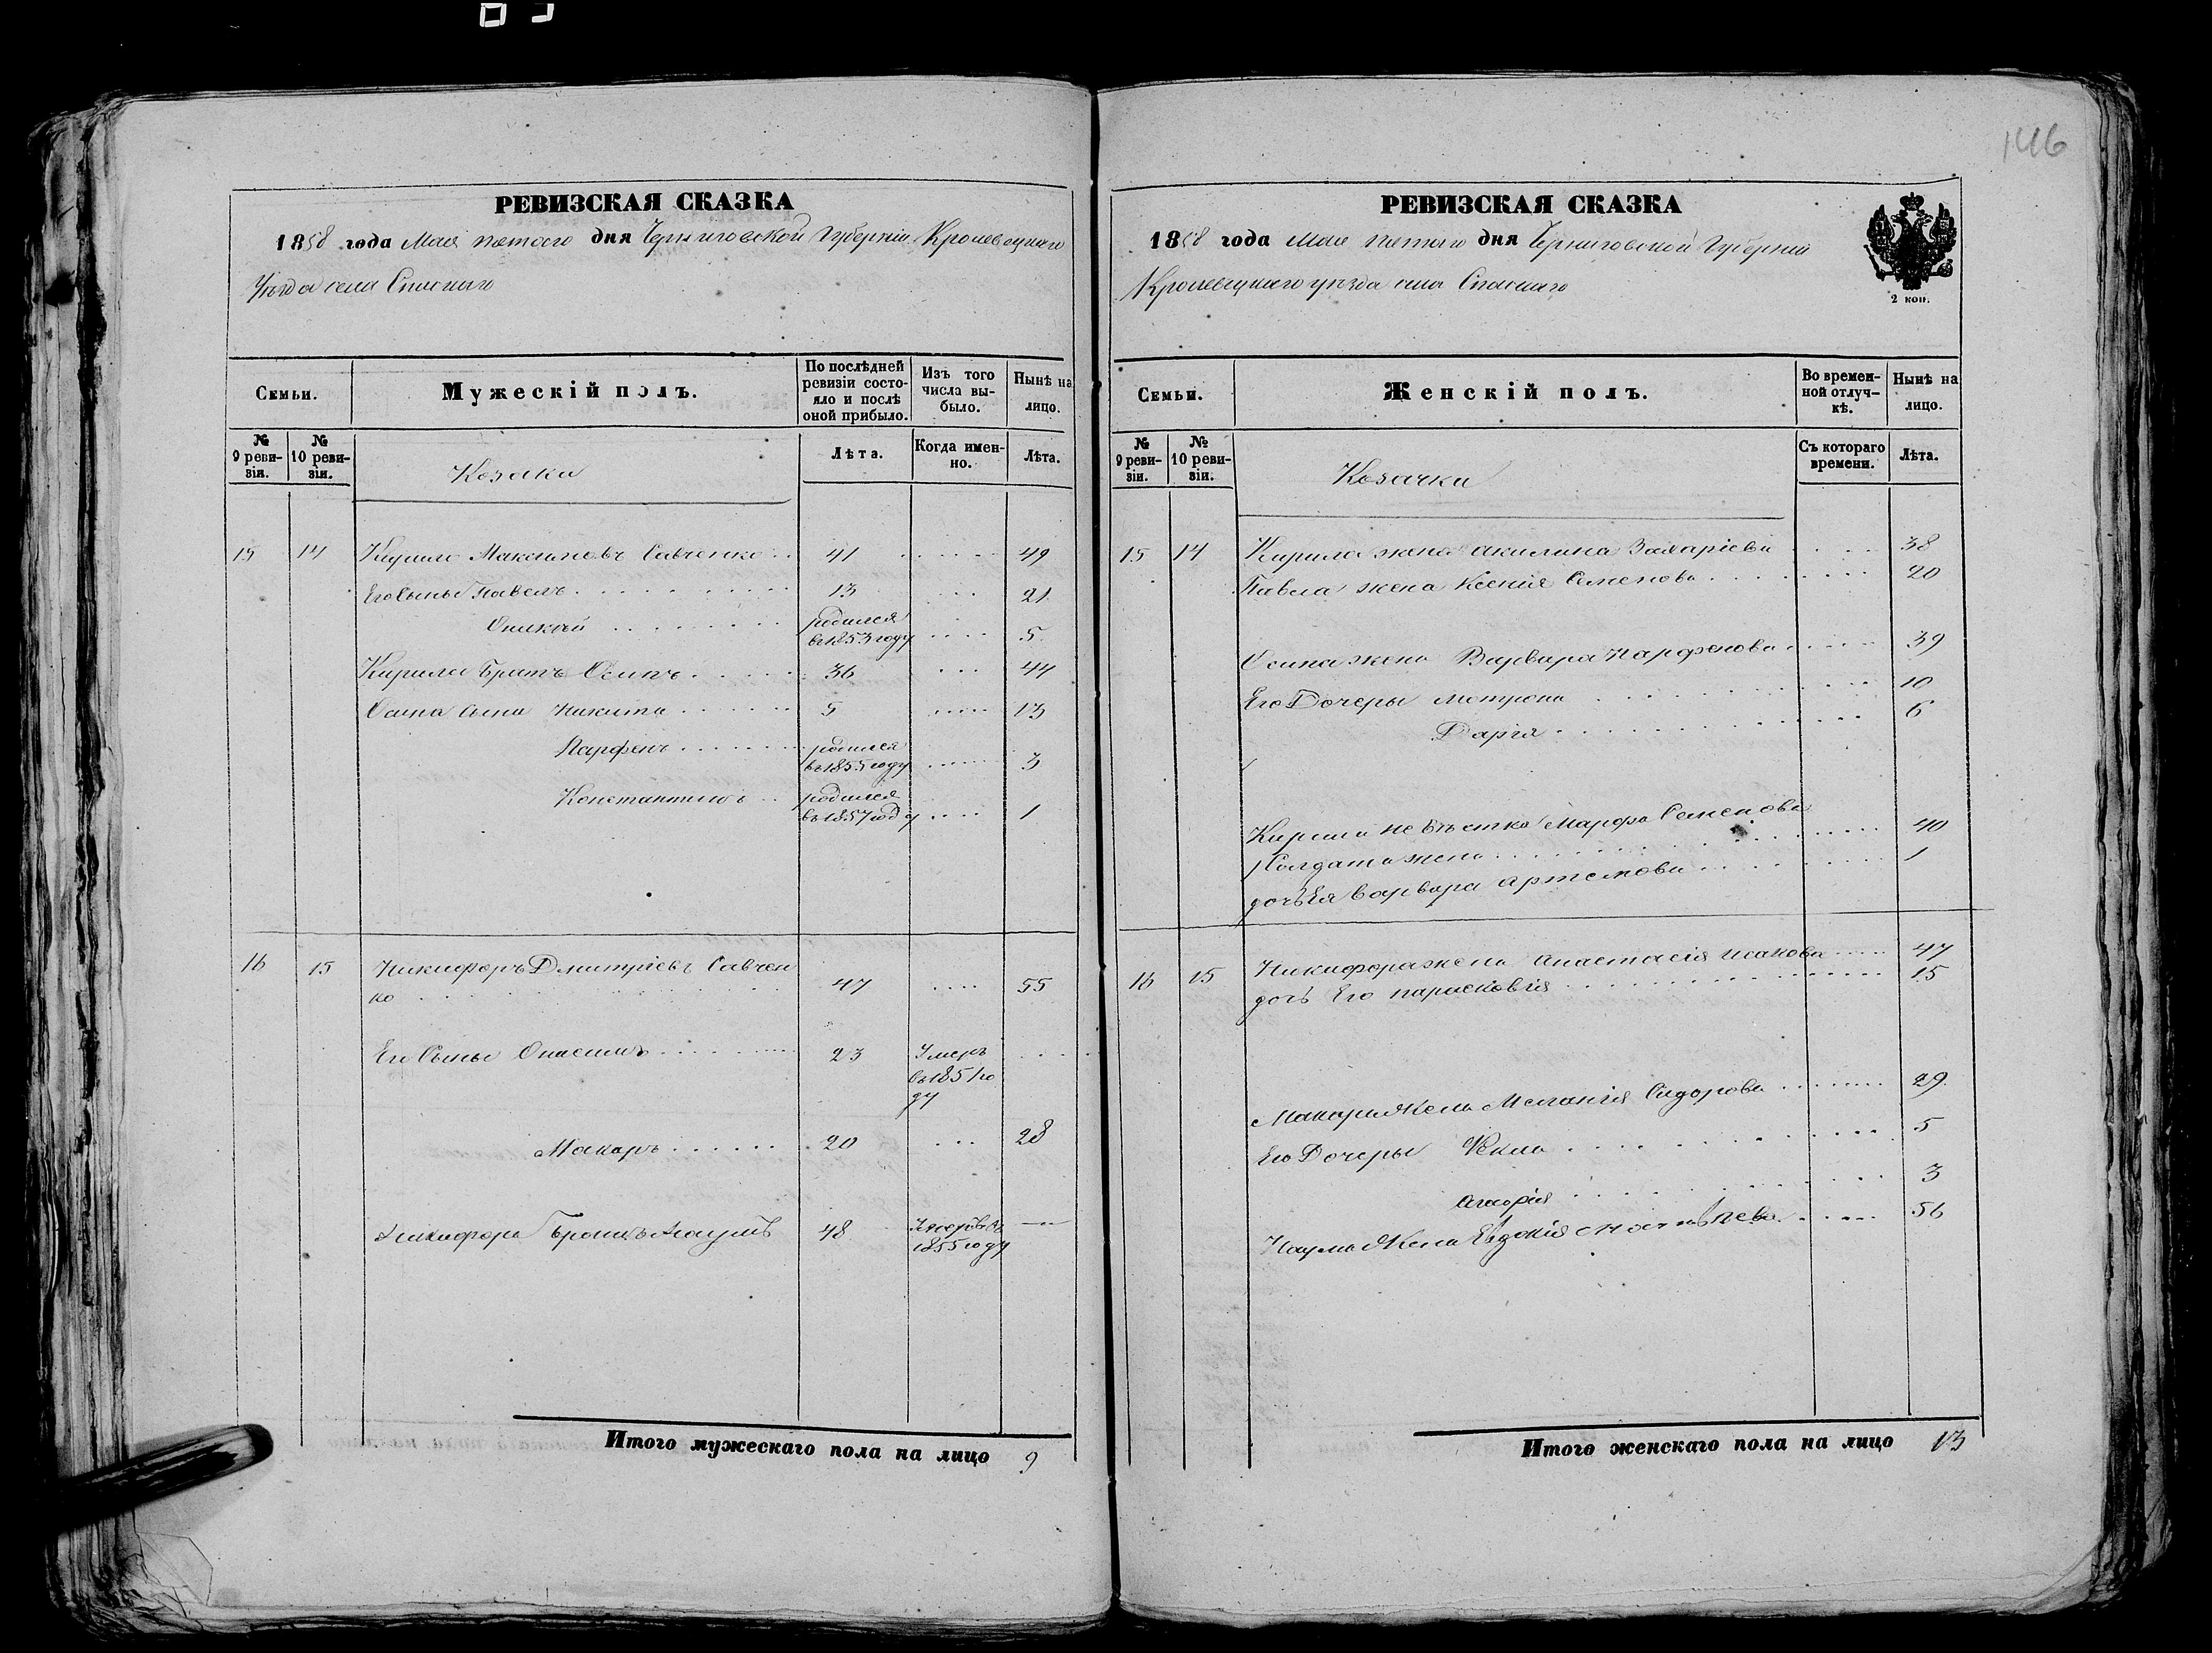 146
РЕВИЗСКАЯ СКАЗКА
1858 года Мая пятого дня Черниговской Губерніи Кролевецкаго
Уѣзда села Спаскаго
Семьи.
Мужескій полъ.
По послѣдней ревизіи состо-
яло и послѣ оной прибыло.
Изъ того числа вы-
было.
Нынѣ на лицо.
№ 9 реви-
зіи.
№ 10 реви-
зіи.
Козаки
Лѣта.
Когда имен-
но.
Лѣта.
15 14 Кирило Максимовъ Савченко 41 49
Его Сыны Павелъ 13 21
родился
въ 1853 году 5
Кирила Братъ Осипъ 36 44
Осипа сыны Никита 5 13
Парфенъ родился
въ 1855 году 3
Константинъ родился
въ 1857 году 1
16 15 Никифоръ Дмитріевъ Савчен
ко 47 55
Его Сыны Онисимъ 23 Умеръ
въ 1851 го
ду
Макаръ 20 28
Никифора Братъ Наумъ 48 Умеръ въ
1855 году —
Итого мужескаго пола на лицо 9
РЕВИЗСКАЯ СКАЗКА
1858 года Мая пятого дня Черниговской Губерніи
Кролевецкаго уѣзда села Спаскаго
2 коп.
Семьи.
Женскій полъ.
Во времен-
ной отлуч-
кѣ.
Нынѣ на лицо.
№ 9 реви-
зіи.
№ 10 реви-
зіи.
Козачки
Съ котораго времени.
Лѣта.
15 14 Кирила жена Акилина Захаріева 38
Павла жена Ксенія Семенова 20
Осипа жена Варвара Парфенова 39
Его Дочеры Мотрона 10
Дарія 6
Кирила невѣстка Марфа Семенова
Солдатка жена 40
дочь Ея Варвара Артемова 1
16 15 Никифора жена Анастасія Исакова 47
дочь Его Парасковія 15
Макара Жена Меланія Сидорова 29
Его Дочеры Фекла 5
Марія 3
Наума Жена Евдокія 56
Итого женскаго пола на лицо 13